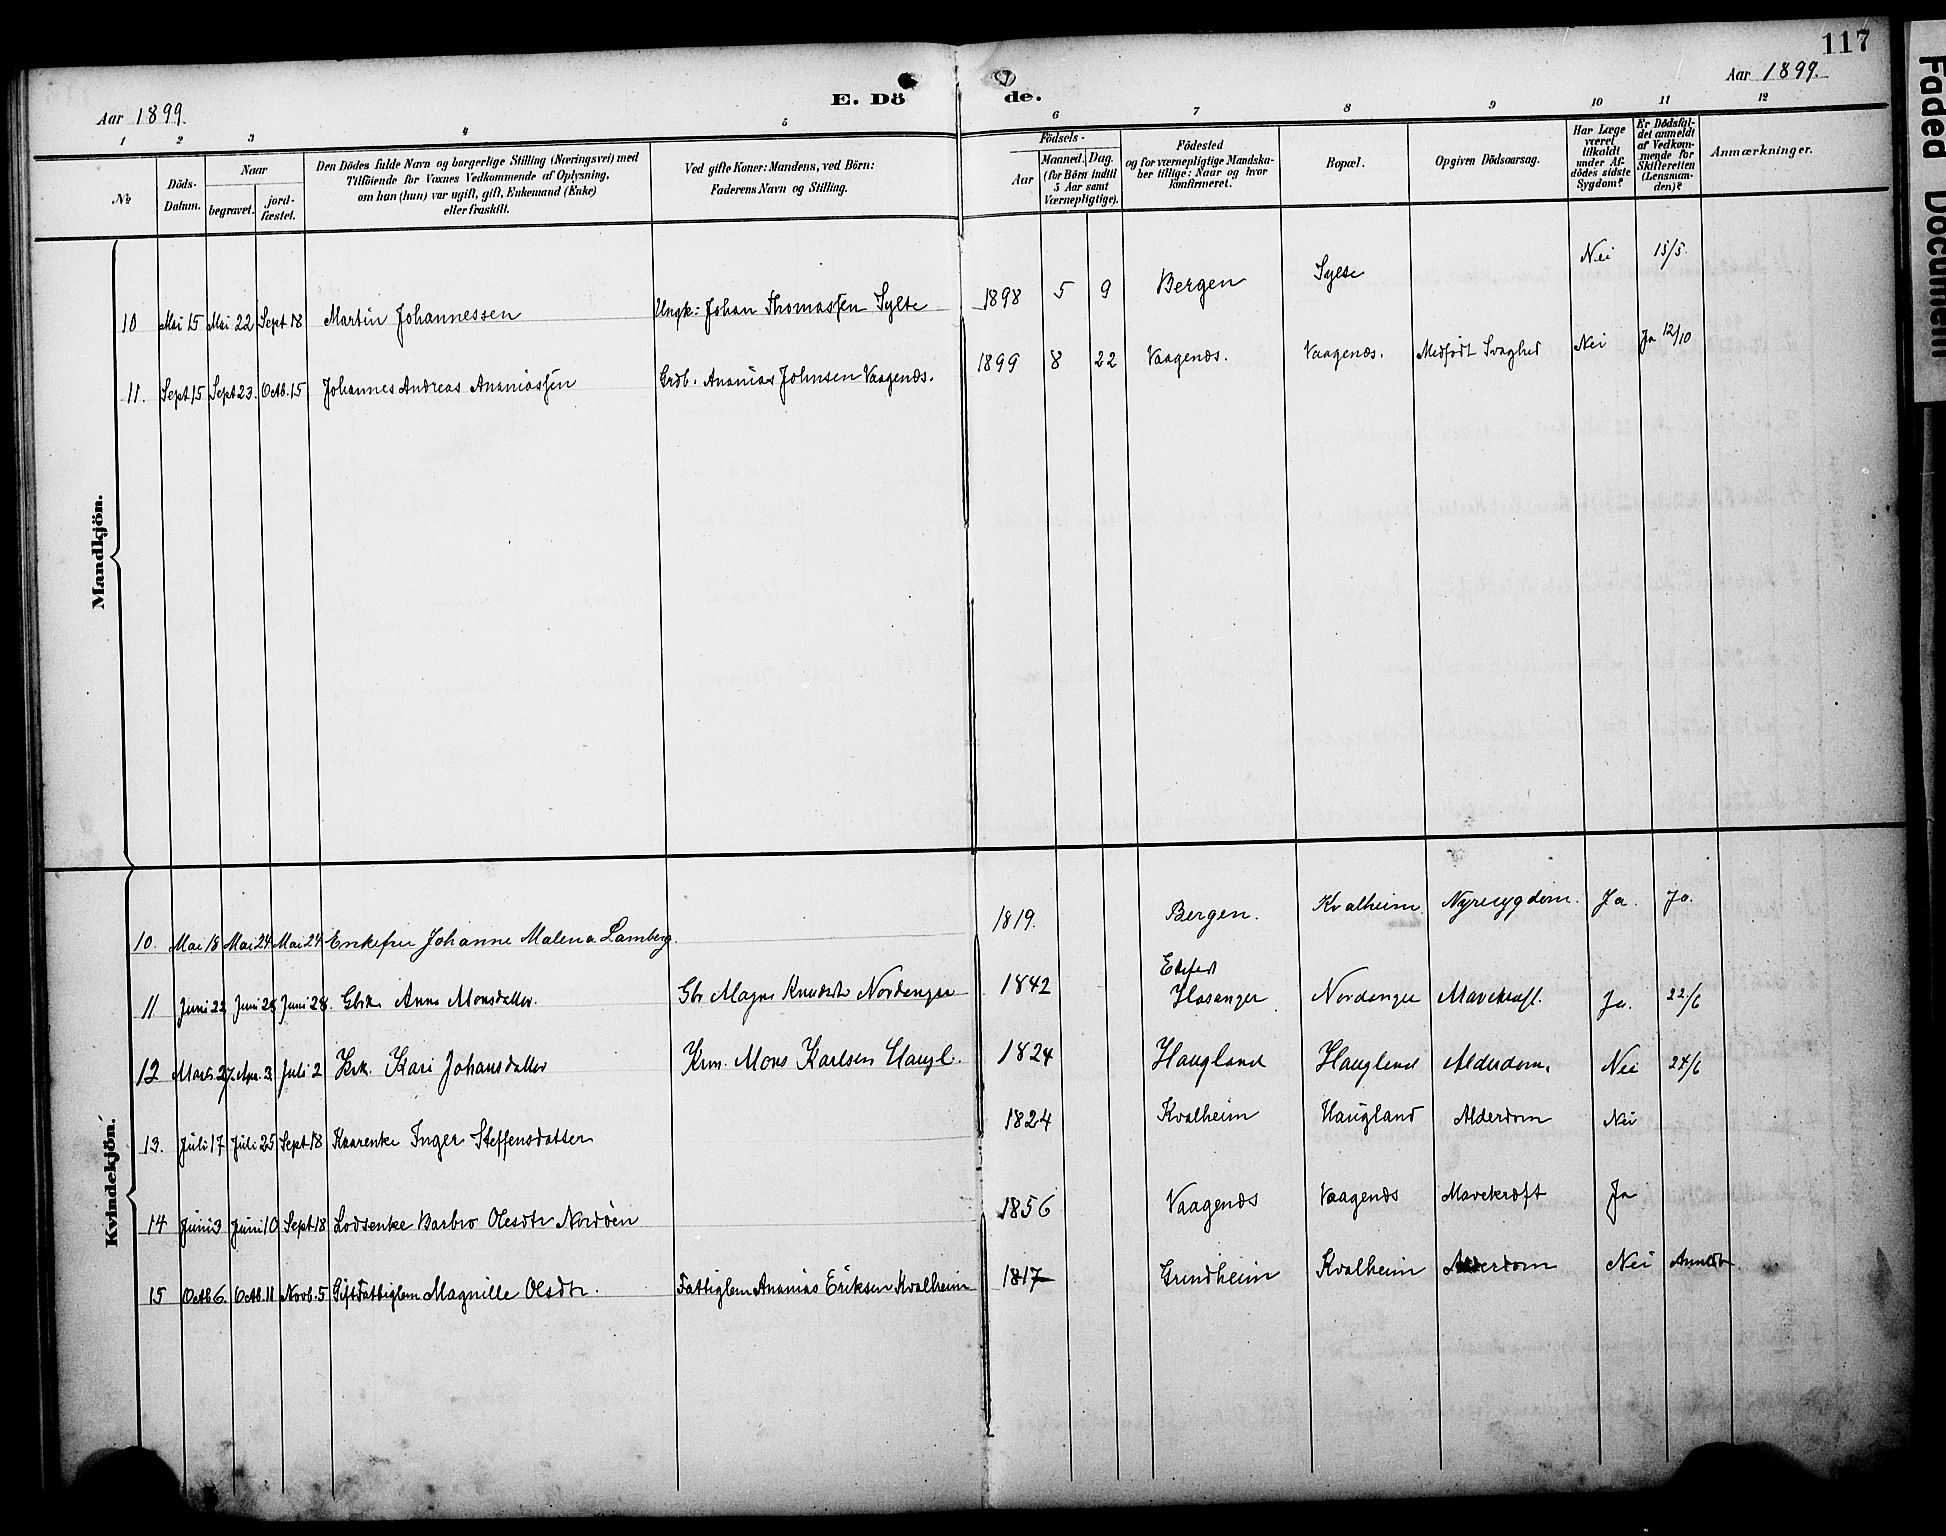 117
Aar 1899.
Aar 1899.
E. Dö de.
1 2 3 4 5 6 7 8 9 10 11 12
No
Döds-Datum.
Naar
begravet.
jord-fæstet.
Den Dödes fulde Navn og borgerlige Stilling (Næringsvei) med
Tilföiende for Voxnes Vedkommende af Oplysning,
om han (hun) var ugift, gift, Enkemand (Enke)
eller fraskilt.
Ved gifte Koner: Mandens, ved Börn:
Faderens Navn og Stilling.
Födsels-
Aar
Maaned. Dag.
(for Börn indtil
5 Aar samt
Værnepligtige).
Födested
og for værnepligtige Mandska-
ber tillige: Naar og hvor
konfirmeret.
Bopæl.
Opgiven Dödsaarsag.
Har Læge
været
tilkaldt
under Af-
dödes sidste
Sygdom?
Er Dödsfal-
det anmeldt
af Vedkom-
mende for
Skifteretten
(Lensman-
den)?
Anmærkninger.
Mandkjön.
10 Mai 15 Mai 22 Sept 18 Martin Johannessen Ungk: Johan Thomassen Sylte 1898 5 9 Bergen Sylte Nei 15/5.
11. Sept 15 Sept 23. Octb. 15 Johannes Andreas Ananiassen Grdb. Ananias Johnsen Vaagenæs. 1899 8 22 Vaagenæs. Vaagenæs. Medfødt Svaghed Nei Ja 12/10
Kvindekjön.
10. Mai 18 Mai 24 Mai 24 Enkefru Johanne Malena Lamberg. 1819. Bergen. Kvalheim. Nyresygdom. Ja. Ja.
11 Juni 22 Juni 28 Juni 28. Gbrk. Anna Monsdatter. Gbr Magne Knudsen Nordanger 1842 Hosanger Nordanger Mavekræft. Ja. 22/6
12 Marts 27. Apr. 3 Juli 2 Krk. Kari Johansdatter Krm. Mons Karlsen Haugl. 1824 Haugland Haugland Alderdom. Nei 24/6
13. Juli 17 Juli 25 Sept 18 Kaarenke Inger Steffensdatter 1824 Kvalheim Haugland Alderdom Nei
14 Juni 3 Juni 10 Sept 18 Lodsenke Barbro Olesdtr Nordøen 1856 Vaagenæs Vaagenæs Mavekræft Ja
15 Octb 6. Octb. 11 Novb. 5 Gift Fattiglem Magnille Olsdtr. Fattiglem Ananias Eriksen Kvalheim 1817 Grindheim Kvalheim Alderdom Nei Anmeldt
Faded Document